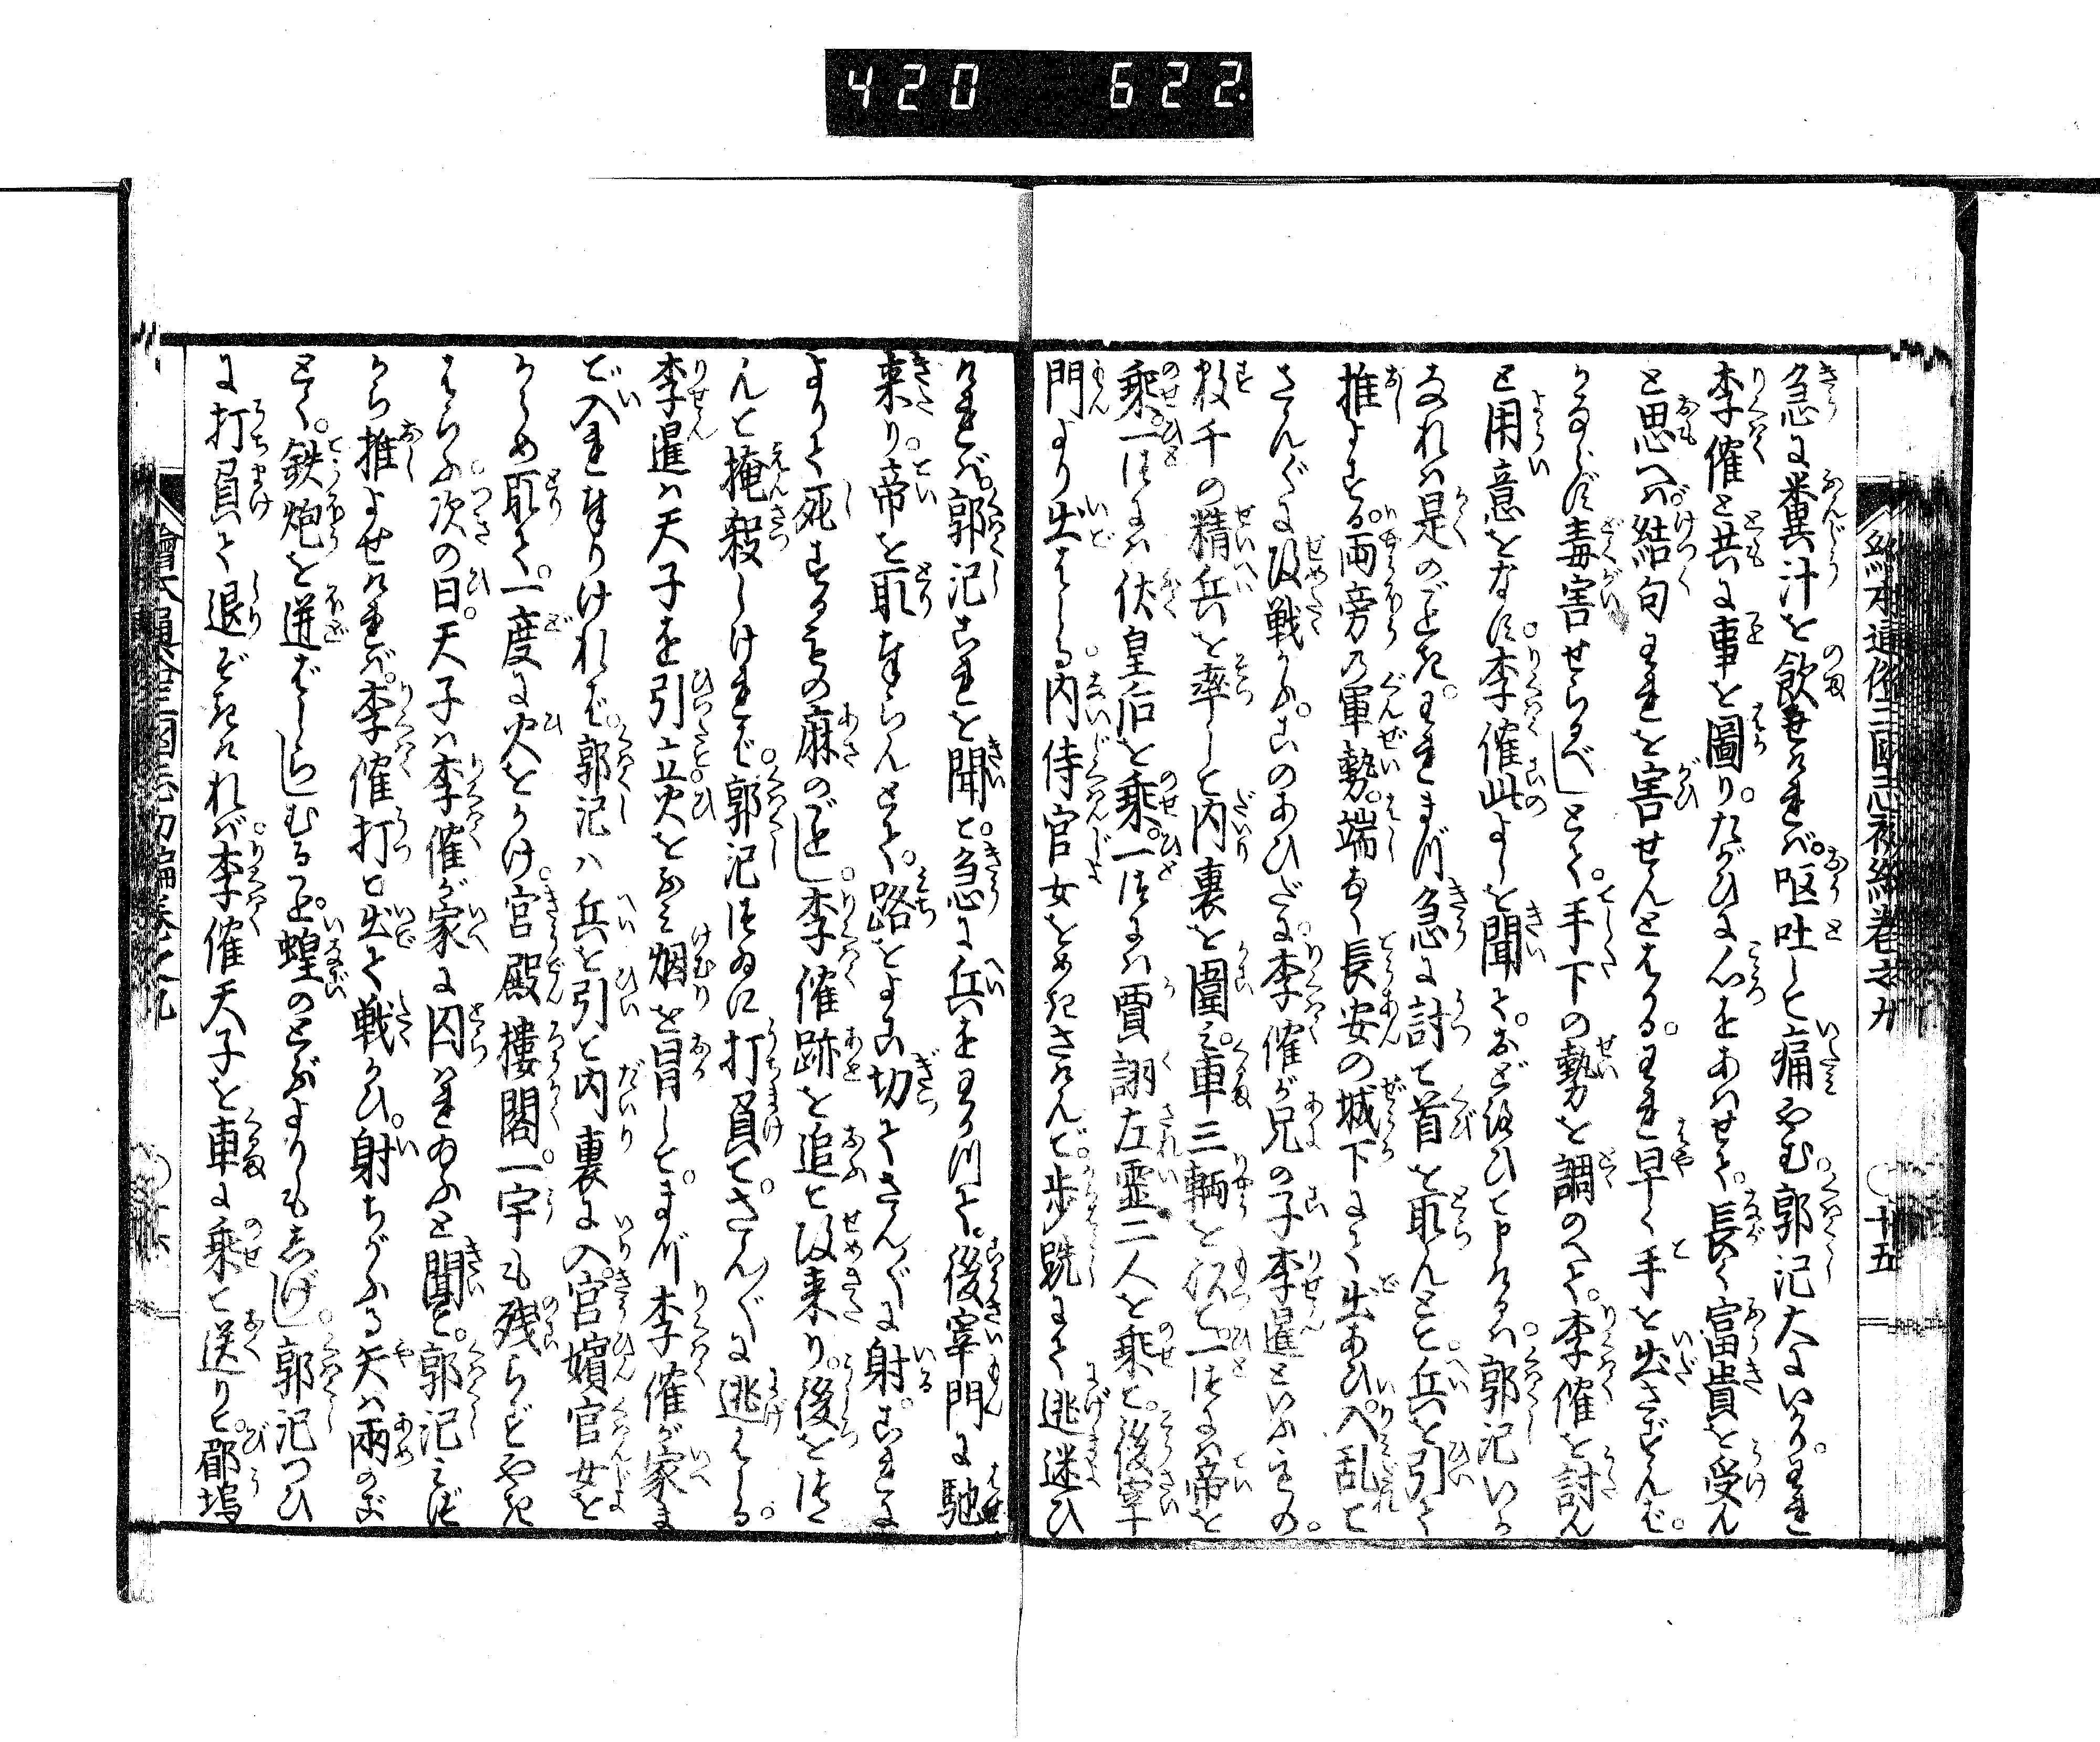 420 622.
絵本通俗三国志初編巻之九 ○十五
急に糞汁を飲せければ。嘔吐して痛やむ。郭汜大いにいかり。われ
李傕と共に事を圖り。たがひに心をあはせて。長く富貴を受ん
と思へば。結句われを害せんとはかる。われ早く手を出さずんば。
かならず毒害せらるべしとて。手下の勢を調のへて。李傕を討ん
と用意をなす。李傕此よしを聞て。おどろひて申けるは。郭汜いか
なれば是のごとき。われまづ急に討て首を取んとて。兵を引て
推よする。両旁の軍勢。端なく長安の城下にて出あひ。入乱て
さんざんに攻戦かふ。このあひだに。李傕が兄の子李暹といふもの。
数千の精兵を率して内裏を圍み。車三輌を以て。一つには帝を
乗。一つには伏皇后を乗。一つには賈詡左霊二人を乗て。後宰
門より出はしる。内侍官女をめきさけんで。歩跣にて逃迷ひ
ければ。郭汜これを聞て。急に兵をわかつて。後宰門に馳
来り。帝を取奉らんとて。路をよこ切てさんざんに射。これに
よりて死するもの麻のごとし。李傕跡を追て攻来り。後をつゝ
んで掩殺しければ。郭汜つゐに打負て。さんざんに逃はしる。
李暹は天子を引立火をふみ烟を冒して。まづ李傕が家ま
で入れ奉りければ。郭汜は兵を引て内裏に入。宮嬪官女を
からめ取て。一度に火をかけ。宮殿樓閣。一宇も残らずやき
はらふ。次の日。天子は李傕が家に囚はれ給ふと聞て。郭汜みづ
から推よせければ。李傕打て出て戦かひ。射ちがふる矢は雨のご
とく。鉄炮を迸ばしらしむる事。蝗のとぶよりも志げし。郭汜つひ
に打負て退ぞきければ。李傕天子を車に乗て送りて。郿塢
繪本通俗三國志初編巻之九